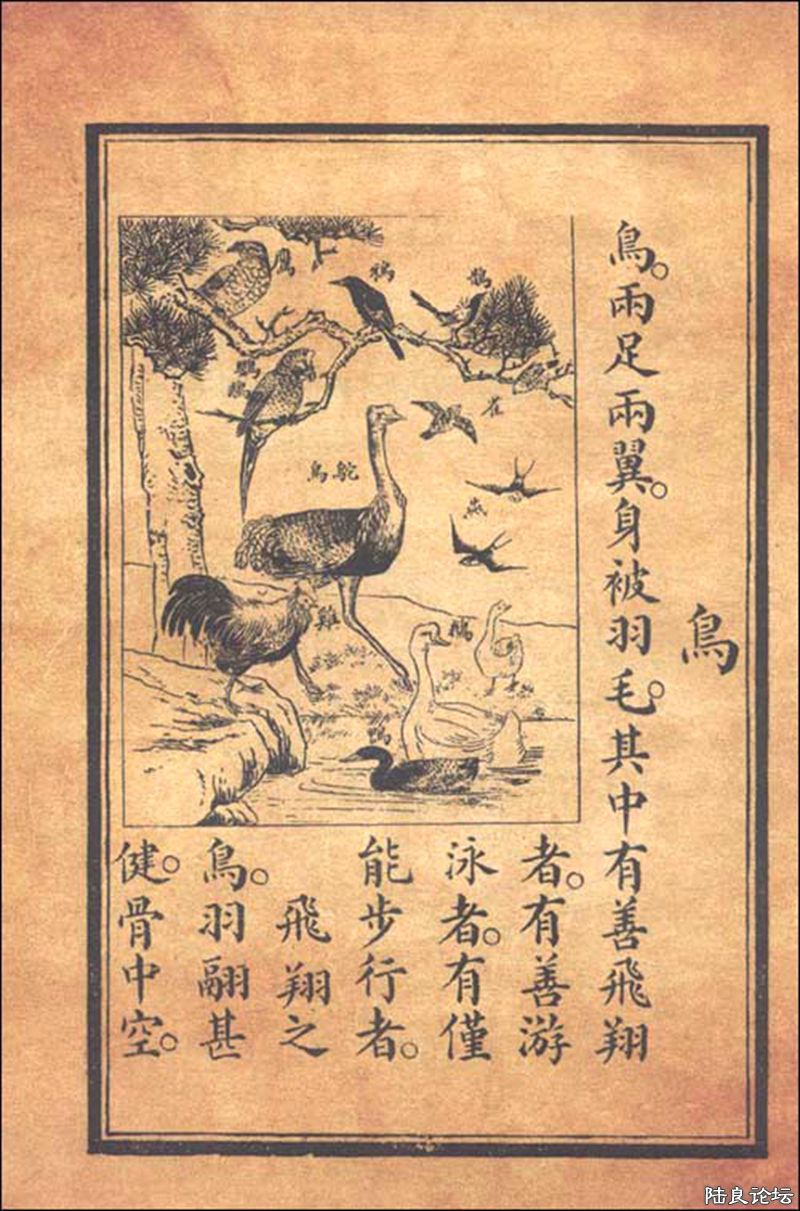 鳥
鳥。兩足兩翼。身被羽毛。其中有善飛翔
者。有善游
泳者。有僅
能步行者。
飛翔之
鳥。羽翮甚
健。骨中空。
鷹
鴉
鵲
鸚鵡
雀
鳥鴕
燕
雞
鵝
陆良论坛